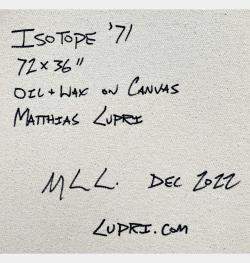 ISOTOPE '71
72 x 36"
OIL + WAX ON CANVAS
MATTHIAS LUPRI
MLL. DEC 2022
LUPRI.COM